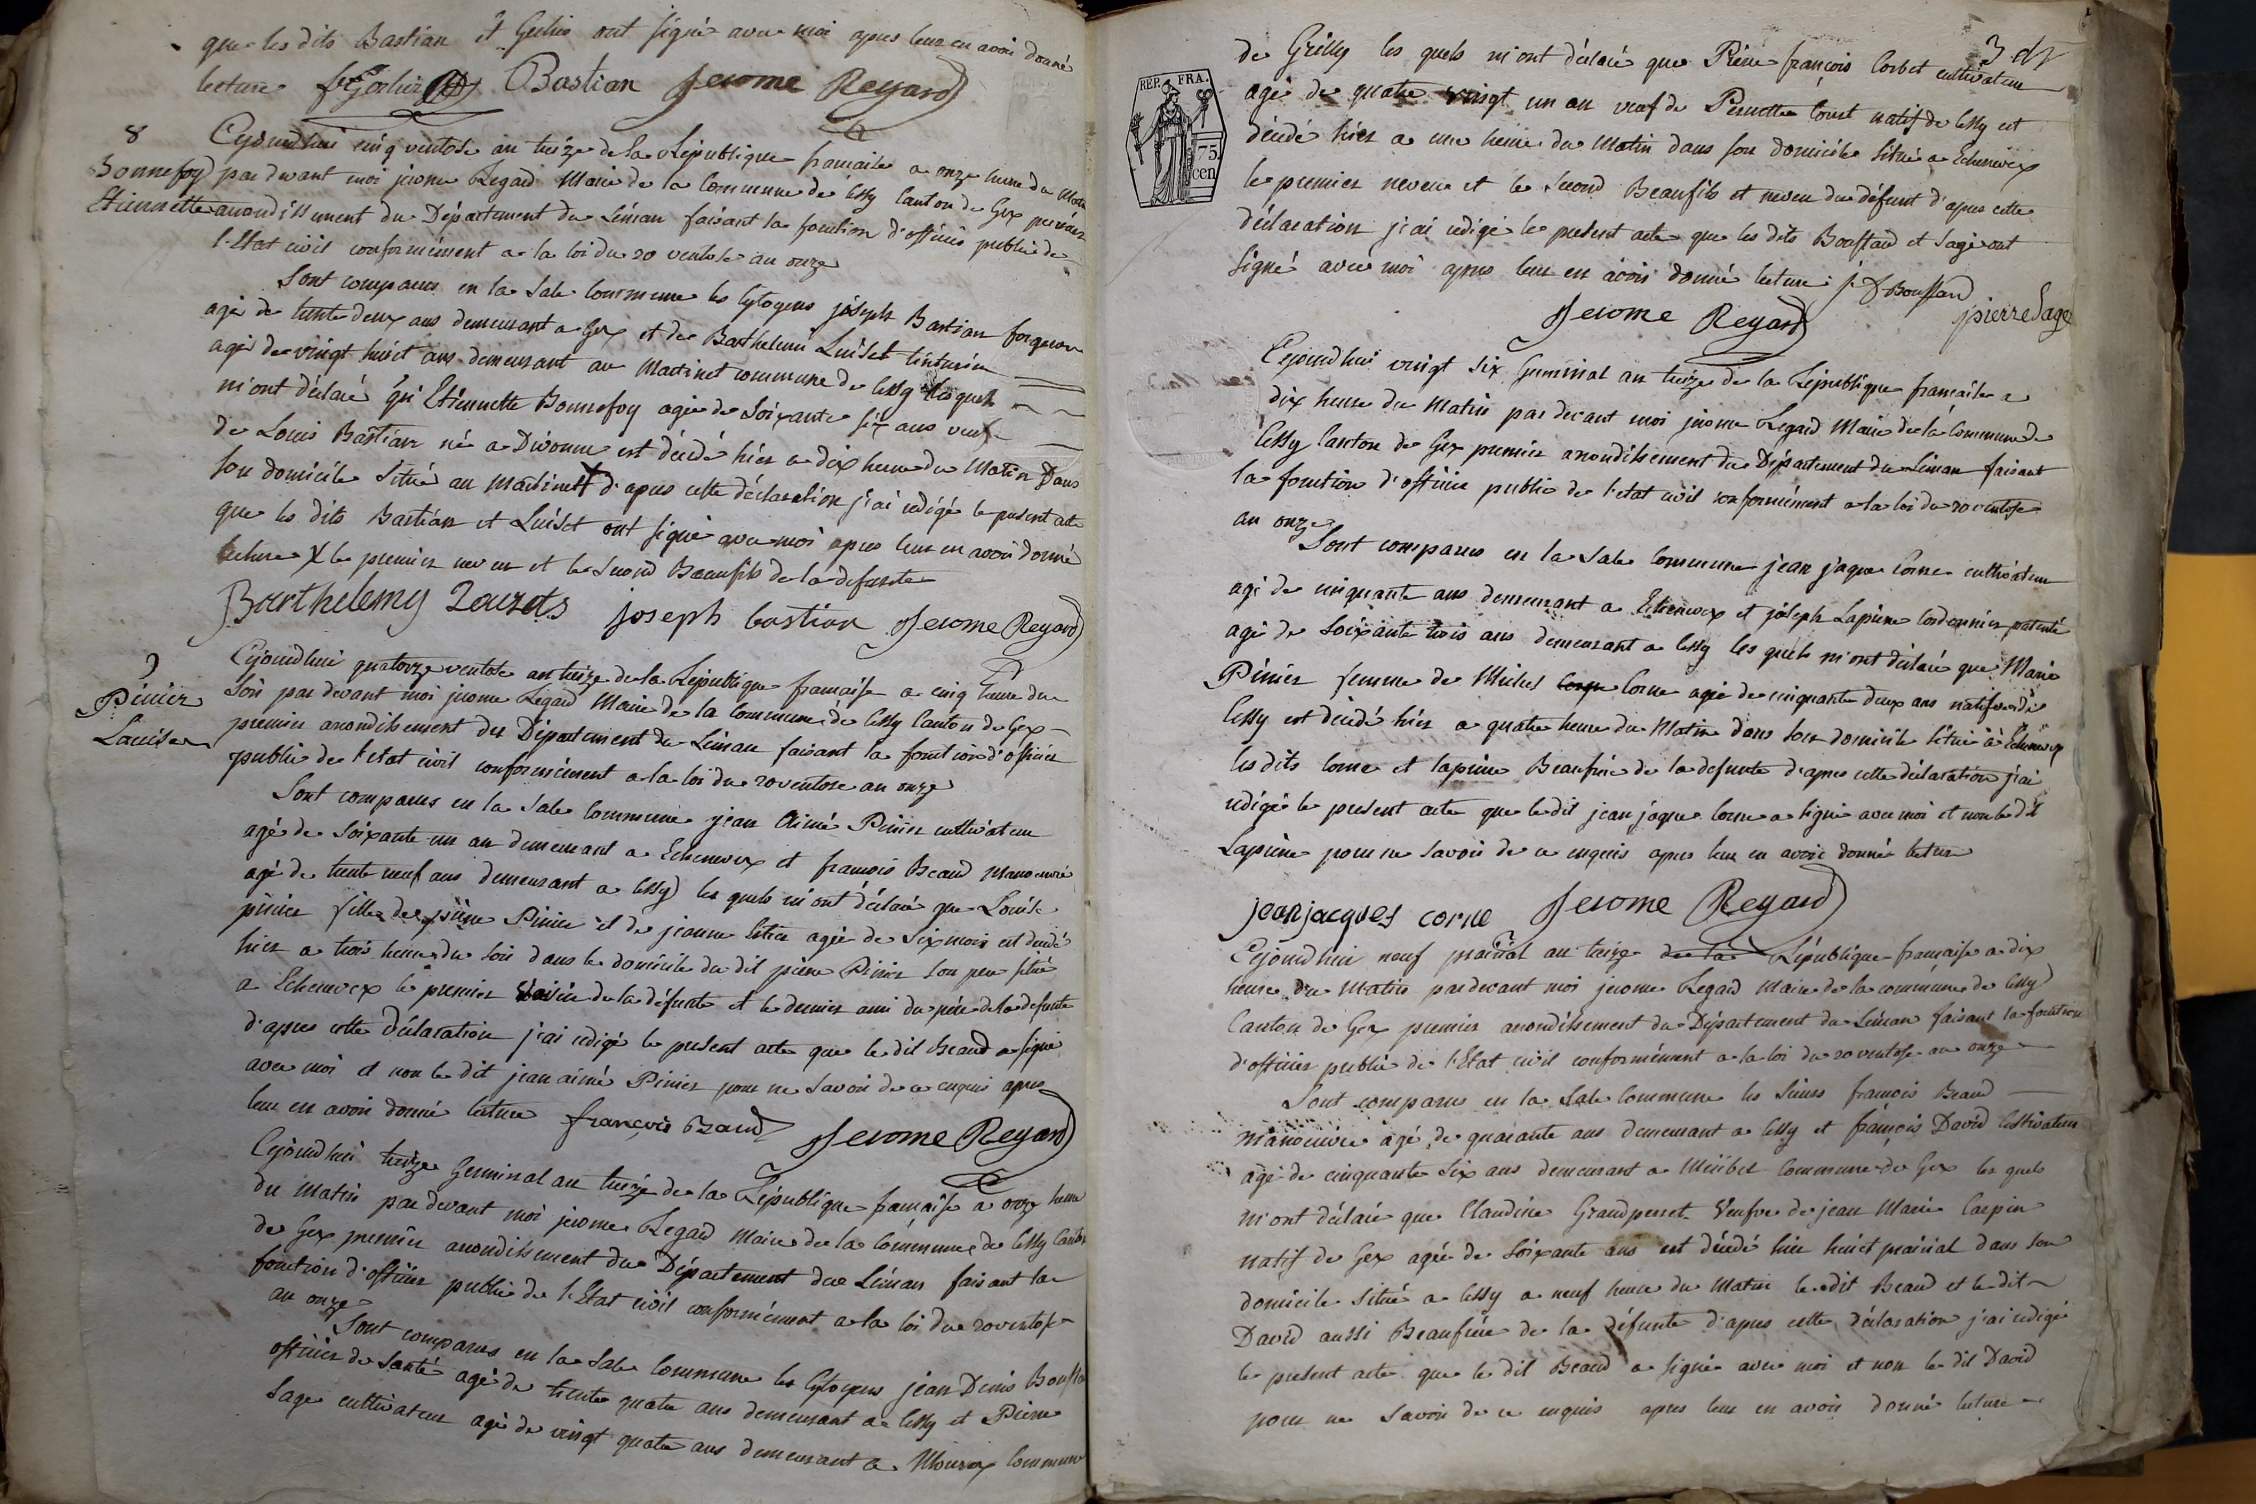 que les dits Bastian et ont signé avec moi apres leur en avoir donné
lecture Bastian Jerome Regard
8
Bonnefoy
Etiennette
Cejourdhui cinq ventose an treize de la Republique francaise a onze heure du matin
par devant moi jerome Regard Maire de la Commune de Cessy Canton de Gex premier
arrondissement du Département du Léman faisant la fonction d'officier public de
l'Etat civil conformément a la loi du 20 ventose an onze
Sont comparus en la Sale Commune les Cytoyens joseph Bastian forgeron
agé de trente deux ans demeurant a Gex et de Barthelemi Luiset
agé de vingt huict ans demeurant au Martinet commune de Cessy lesquels
m'ont déclaré qu'Etiennette Bonnefoy agée de Soixante six ans veuve
de Louis Bastian né a Divonne est décédé hier a dix heure du Matin Dans
son domicile situé au Martinet X d'apres cette déclaration j'ai redigé le present acte
que les dits Bastian et Luiset ont signé avec moi apres leur en avoir donné
lecture X le premier neveu et le second Beaufils de la defunte
Barthelemy joseph bastian Jerome Regard
9
Pinier
Louise
Cejourdhui quatorze ventose an treize de la Republique francaise a cinq heure du
Soir par devant moi jerome Regard Maire de la Commune de Cessy Canton de Gex
premier arrondissement du Département du Léman faisant la fonction d'officier
public de l'etat civil conformément a la loi du 20 ventose an onze
Sont comparus en la Sale Commune jean Aimé Pinier cultivateur
agé de soixante un an demeurant a Echenevex et francois Beaud manoeuvre
agé de trente neuf ans demeurant a Cessy les quels m'ont déclaré que Louise
pinier fille de pierre Pinier et de jeanne agée de six mois est décédé
hier a trois heure du soir dans le domicile du dit pierre Pinier son pere situé
a Echenevex le premier voisin de la défunte et le dernier ami du père de la defunte
d'apres cette déclaration j'ai redigé le present acte que le dit Beaud a signé
avec moi et non le dit jean aimé Pinier pour ne savoir de ce enquis apres
leur en avoir donné lecture françois Baud Jerome Regard
Cejourdhui treize Germinal an treize de la Republique francaise a onze heure
du Matin par devant moi jerome Regard Maire de la Commune de Cessy Canton
de Gex premier arrondissement du Département du Léman faisant la
fonction d'officier public de l'Etat civil conformément a la loi du 20 ventose
an onze
Sont comparus en la Sale Commune les Cytoyens jean Denis
officier de santé agé de trente quatre ans demeurant a Cessy et Pierre
Sage cultivateur agé de vingt quatre ans demeurant a Mourex Commune
REP. FRA.
75.
cen.
de Grilly les quels m'ont déclaré que Pierre françois Corbet cultivateur
agé de quatre vingt un an veuf de Pernette natif de Cessy est
décédé hier a une heure du Matin dans son domicile situé a Echenevex
le premier neveu et le second Beaufils et neveu du défunt d'apres cette
déclaration j'ai redigé le present acte que les dits et Sage ont
signé avec moi apres leur en avoir donné lecture
Jerome Regard pierre Sage
Cejourdhui vingt six Germinal an treize de la Republique francaise a
dix heure du Matin par devant moi jerome Regard Maire de la Commune de
Cessy Canton de Gex premier arrondissement du Département du Léman faisant
la fonction d'officier public de l'etat civil conformément a la loi du 20 ventose
an onze
Sont comparus en la Sale Commune jean jaque Corne cultivateur
agé de cinquante ans demeurant a Echenevex et joseph Lapierre Cordonnier patenté
agé de soixante trois ans demeurant a Cessy les quels m'ont déclaré que Marie
Pinier femme de Michel Corne agée de cinquante deux ans native de
Cessy est décédé hier a quatre heure du Matin dans son domicile situé à Echenevex
les dits Corne et lapierre Beaufrère de la defunte d'apres cette déclaration j'ai
redigé le present acte que le dit jean jaque Corne a signé avec moi et non le dit
Lapierre pour ne savoir de ce enquis apres leur en avoir donné lecture
jean jacques corne Jerome Regard
Cejourdhui neuf prairial an treize de la Republique francaise a dix
heure du Matin pardevant moi jerome Regard Maire de la commune de Cessy
Canton de Gex premier arrondissement du Département du Léman faisant la fonction
d'officier public de l'Etat civil conformément a la loi du 20 ventose an onze
Sont comparus en la Sale Commune les sieurs francois Beaud
manoeuvre agé de quarante ans demeurant a Cessy et françois David Cultivateur
agé de cinquante six ans demeurant a Commune de Gex les quels
m'ont déclaré que Claudine Grandperret Veufve de jean Marie Carpin
natif de Gex agée de soixante ans est décédé hier huict prairial dans son
domicile situé a Cessy a neuf heure du Matin le dit Beaud et le dit
David aussi Beaufrére de la défunte d'apres cette déclaration j'ai redigé
le present acte que le dit Beaud a signé avec moi et non le dit David
pour ne savoir de ce enquis apres leur en avoir donné lecture